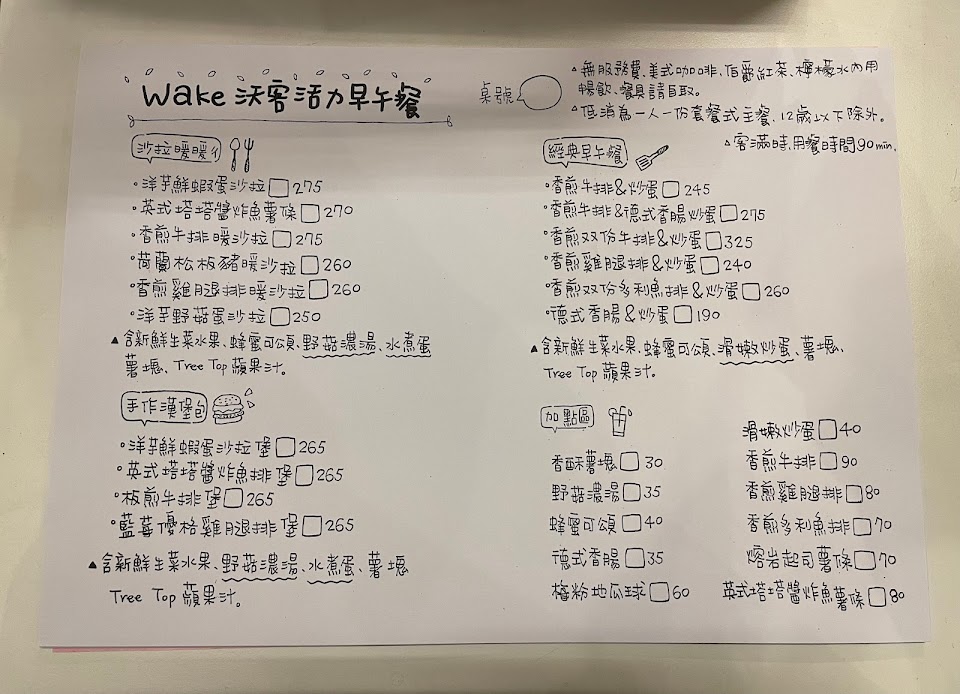 Wake 沃客活力早午餐
桌號
▵無服務費、美式咖啡、伯爵紅茶、檸檬水內用
暢飲、餐具請自取。
▵低消為一人一份套餐式主餐、12歲以下除外。
▵客滿時,用餐時間90min.
沙拉暖暖ㄔ
•洋芋鮮蝦蛋沙拉□275
•英式塔塔醬炸魚薯條□270
•香煎牛排暖沙拉□275
•荷蘭松板豬暖沙拉□260
•香煎雞腿排暖沙拉□260
•洋芋野菇蛋沙拉□250
▲含新鮮生菜水果、蜂蜜可頌、野菇濃湯、水煮蛋
薯塊、Tree Top 蘋果汁。
手作漢堡包
•洋芋鮮蝦蛋沙拉堡□265
•英式塔塔醬炸魚排堡□265
•板煎牛排堡□265
•藍莓優格雞腿排堡□265
▲含新鮮生菜水果、野菇濃湯、水煮蛋、薯塊
Tree Top 蘋果汁。
經典早午餐
•香煎牛排&炒蛋□245
•香煎牛排&德式香腸炒蛋□275
•香煎双份牛排&炒蛋□325
•香煎雞腿排&炒蛋□240
•香煎双份多利魚排&炒蛋□260
•德式香腸&炒蛋□190
▲含新鮮生菜水果、蜂蜜可頌、滑嫩炒蛋、薯塊、
Tree Top 蘋果汁。
加點區
香酥薯塊□30
野菇濃湯□35
蜂蜜可頌□40
德式香腸□35
梅粉地瓜球□60
滑嫩炒蛋□40
香煎牛排□90
香煎雞腿排□80
香煎多利魚排□70
熔岩起司薯條□70
英式塔塔醬炸魚薯條□80